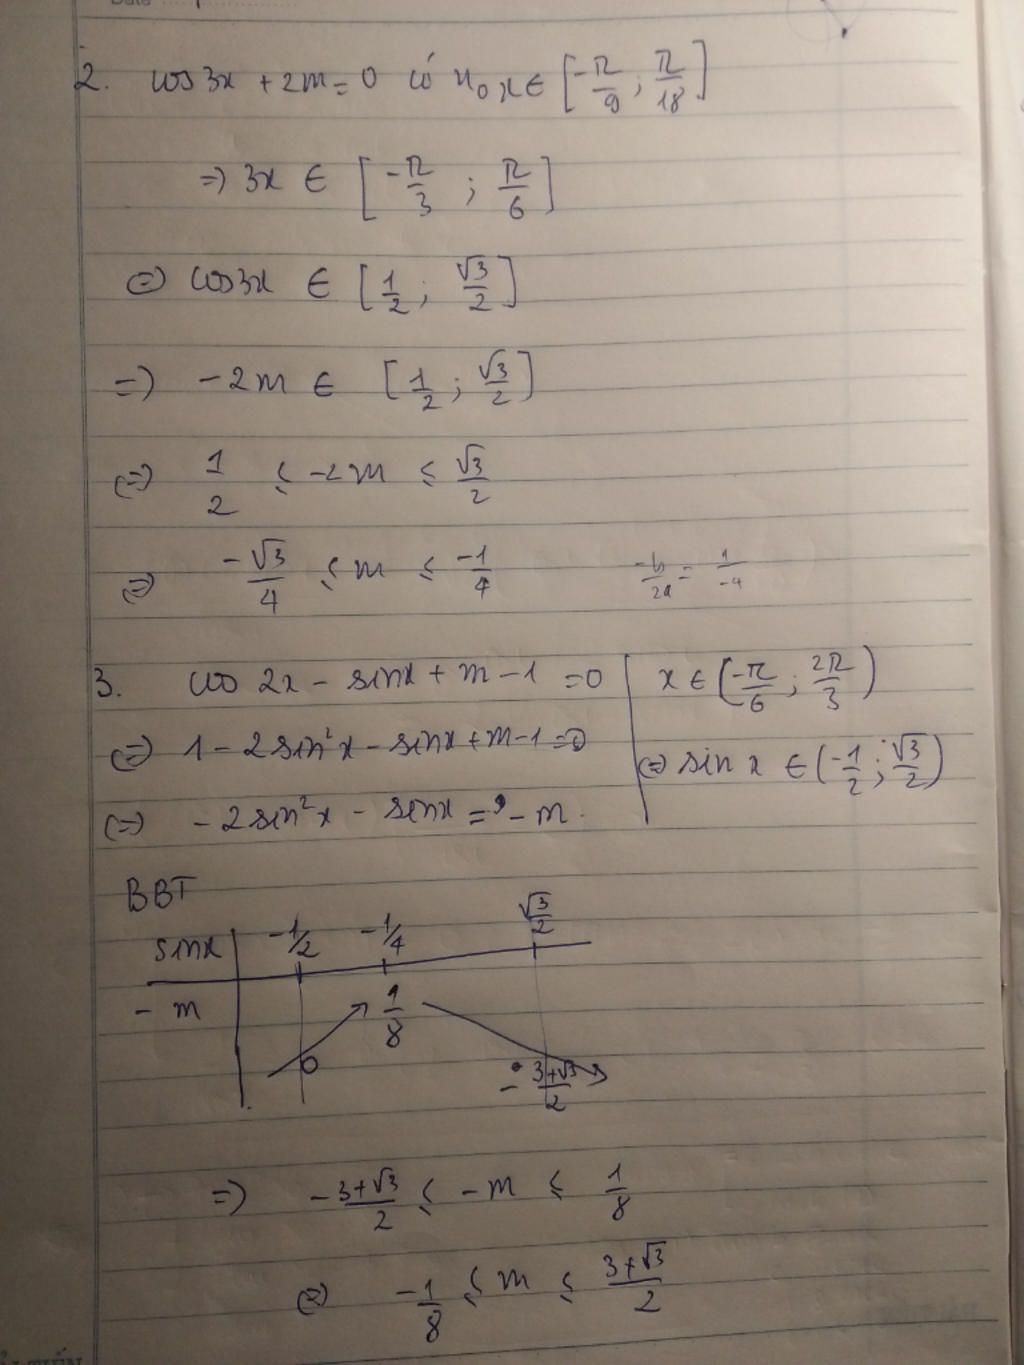 2. cos 3x + 2m = 0 có n₀ x ∈ [-π/9 ; π/18]
=> 3x ∈ [-π/3 ; π/6]
(=) cos3x ∈ [1/2 ; √3/2]
=) -2m ∈ [1/2 ; √3/2]
(=) 1/2 ≤ -2m ≤ √3/2
(=) -√3/4 ≤ m ≤ -1/4
-b/2a = 1/-4
3. cos 2x - sinx + m - 1 = 0 | x ∈ (-π/6 ; 2π/3)
(=) 1 - 2sin²x - sinx + m - 1 = 0
(=) sin x ∈ (-1/2 ; √3/2)
(=) -2sin²x - sinx = -m.
BBT
sinx -1/2 -1/4 √3/2
-m 1/8
0 -3+√3/2
=) -3+√3/2 ≤ -m ≤ 1/8
(=) -1/8 ≤ m ≤ 3+√3/2